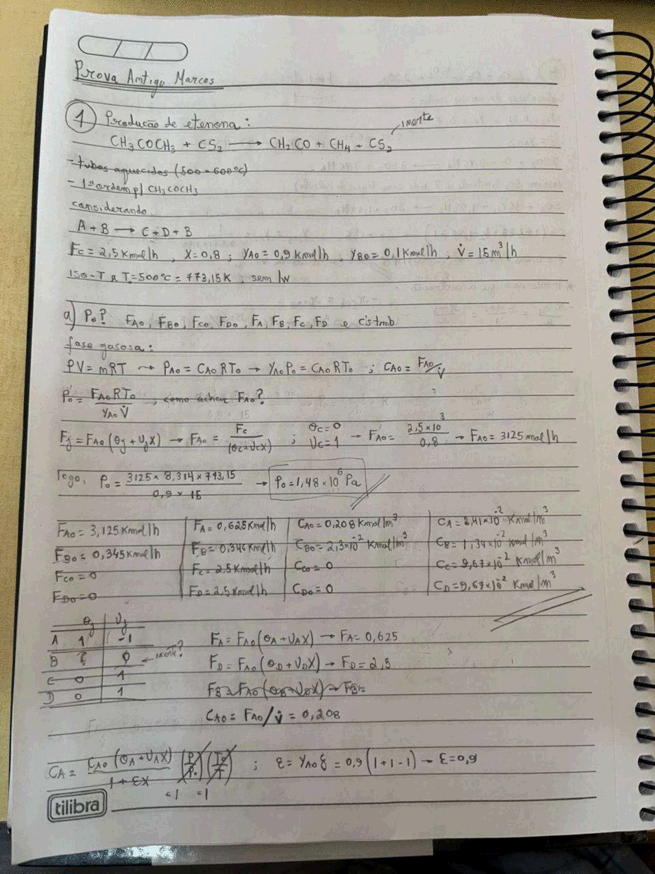 Prova Antiga Marcos
1 Produção de etenona: inerte
CH₃COCH₃ + CS₂ → CH₂CO + CH₄ + CS₂
- tubos aquecidos (500-600°C)
- 1ª ordem p/ CH₃COCH₃
considerando
A + B → C + D + B
Fc = 2,5 Kmol/h , X = 0,8 ; yA0 = 0,9 Kmol/h , yB0 = 0,1 Kmol/h , V̇ = 15 m³/h
T = 500°C = 773,15K , sem
a) P0? FA0, FB0, FC0, FD0, FA, FB, FC, FD e
fase gasosa:
PV = nRT → PA0 = CA0RT0 → yA0P0 = CA0RT0 ; CA0 = FA0/V̇
P0 = FA0RT0 / yA0 V̇ , como achar FA0?
Fj = FA0(θj + νjX) → FA0 = Fc / (θc + νcX) ; θc = 0 νc = 1 → FA0 = 2,5×10³ / 0,8 → FA0 = 3125 mol/h
logo, P0 = 3125 × 8,314 × 773,15 / 0,9 × 15 → P0 = 1,48×10⁶ Pa
FA0 = 3,125 Kmol/h FA = 0,625 Kmol/h CA0 = 0,208 Kmol/m³ CA = 2,41×10⁻² Kmol/m³
FB0 = 0,345 Kmol/h FB = 0,345 Kmol/h CB0 = 2,3×10⁻² Kmol/m³ CB = 1,34×10⁻² Kmol/m³
FC0 = 0 FC = 2,5 Kmol/h CC0 = 0 CC = 9,67×10⁻² Kmol/m³
FD0 = 0 FD = 2,5 Kmol/h CD0 = 0 CD = 9,67×10⁻² Kmol/m³
θj νj
A 1 -1 FA = FA0(θA + νAX) → FA = 0,625
B ? 0 ← inerte? FD = FA0(θD + νDX) → FD = 2,5
C 0 1 FB = FA0(θB + νBX) → FB =
D 0 1 CA0 = FA0/V̇ = 0,208
CA = CA0(θA + νAX) / 1 + εX (P/P0) (T0/T) ; ε = yA0 ξ = 0,9(1+1-1) → ε = 0,9
=1 =1
tilibra